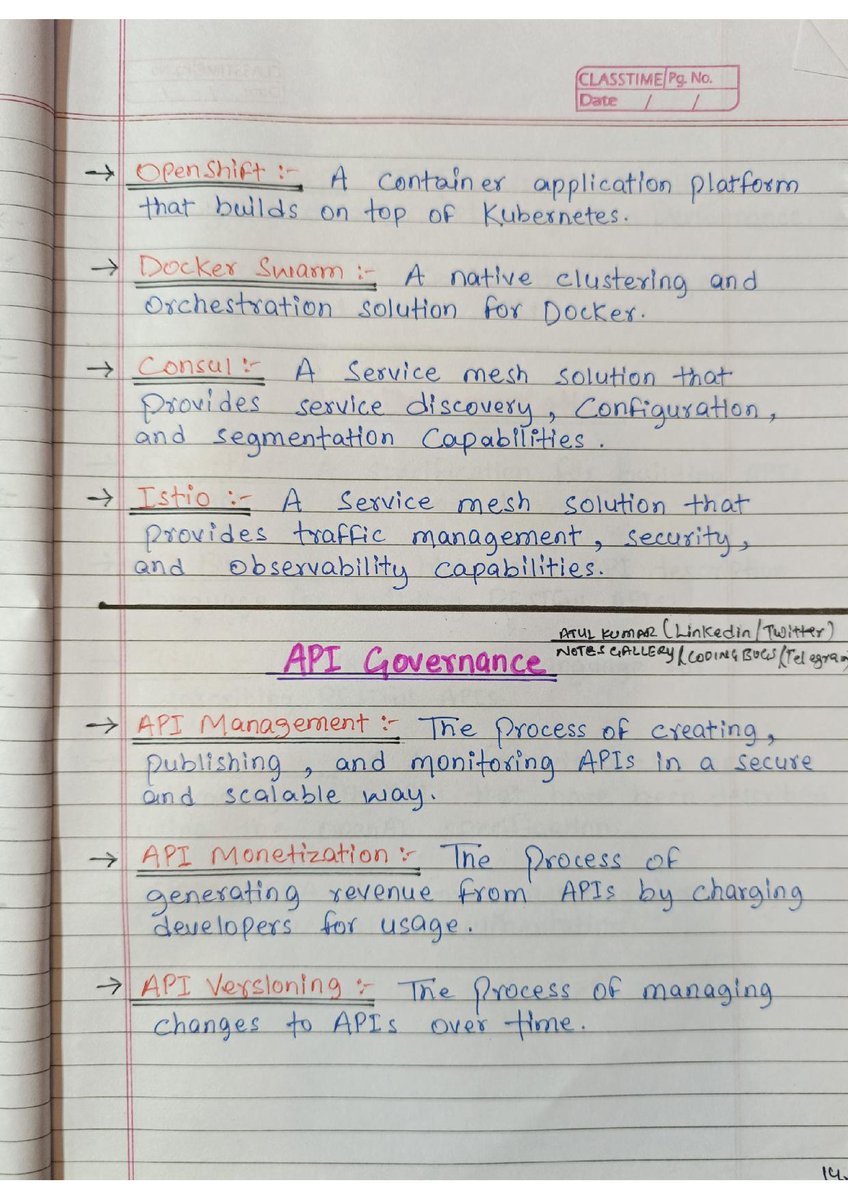 CLASSTIME Pg. No.
Date / /
→ OpenShift :- A Container application platform
that builds on top of Kubernetes.
→ Docker Swarm :- A native clustering and
Orchestration solution for Docker.
→ Consul :- A Service mesh solution that
provides service discovery, Configuration,
and segmentation Capabilities.
→ Istio :- A Service mesh solution that
provides traffic management, security,
and observability capabilities.
ATUL KUMAR (Linkedin/Twitter)
API Governance NOTES GALLERY/CODING BUGS/(Telegram)
→ API Management :- The Process of creating,
publishing, and monitoring APIs in a secure
and scalable way.
→ API Monetization :- The Process of
generating revenue from APIs by charging
developers for usage.
→ API Versioning :- The Process of managing
changes to APIs over time.
14.